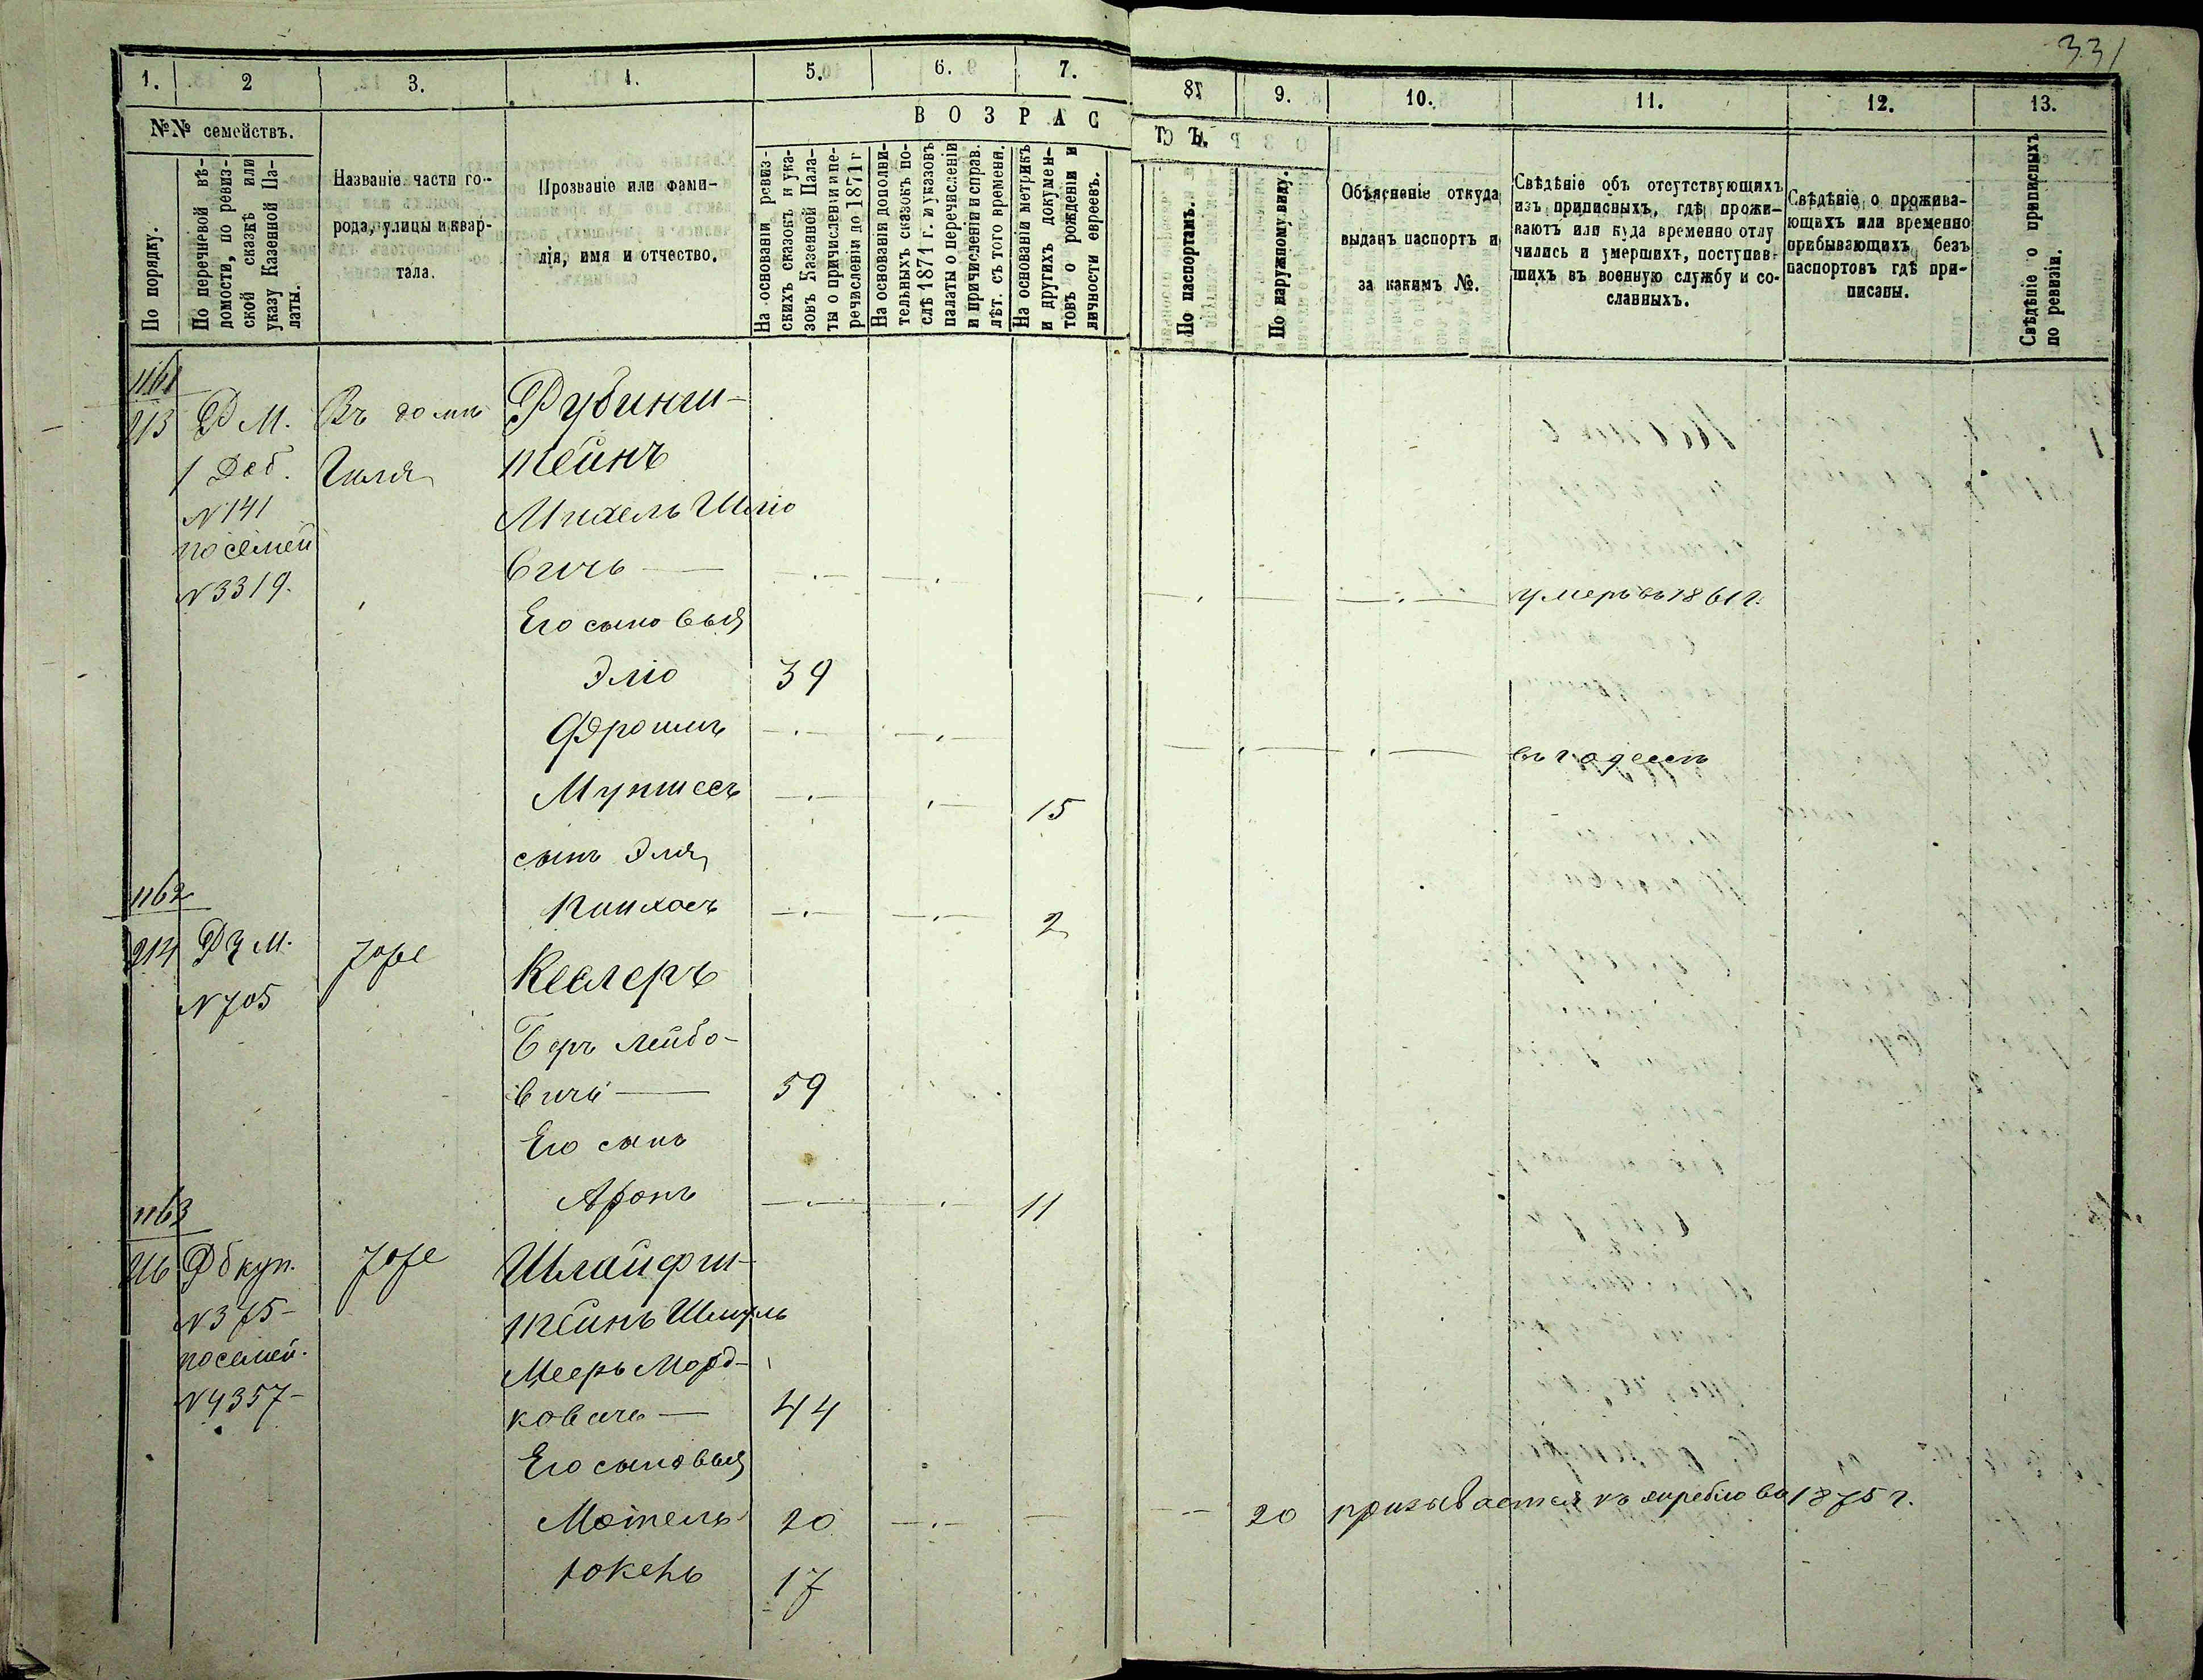 331
1.
2
3.
4.
5.
6.
7.
8
9.
10.
11.
12.
13.
№№ семействъ.
По порядку.
По перечневой вѣ-
домости, по ревиз-
ской сказкѣ или
указу Казенной Па-
латы.
Названіе части го-
рода, улицы и квар-
тала.
Прозваніе или фами-
лія, имя и отчество.
ВОЗРАС
ТЪ.
На основаніи ревиз-
скихъ сказокъ и ука-
зовъ Казенной Пала-
ты о причисленіи и пе-
речисленіи до 1871 г
На основаніи дополни-
тельныхъ сказокъ по-
слѣ 1871 г. и указовъ
палаты о перечисленіи
и причисленіи и справ.
лѣт. съ того времени.
На основаніи метрикъ
и другихъ докумен-
товъ о рожденіи и
личности евреевъ.
По паспортамъ.
По наружному виду.
Объясненіе откуда
выданъ паспортъ и
за какимъ №.
Свѣдѣніе объ отсутствующихъ
изъ приписныхъ, гдѣ прожи-
ваютъ или куда временно отлу
чились и умершихъ, поступив-
шихъ въ военную службу и со-
сланныхъ.
Свѣдѣніе о прожива-
ющихъ или временно
прибывающихъ безъ
паспортовъ гдѣ при-
писаны.
Свѣдѣніе о приписныхъ
по ревизіи.
1161
213 Р М. Въ домѣ Рубинш-
1 Доб. Гиля тейнъ
N 141 Михель Шліо
посемей вичь — умеръ въ 1861 г.
N 3319.
Его сыновья
Эліо 39
Фроимъ
въ г Одессѣ
15
сынъ Эля
1162
Пинхосъ 2
214 Р М. Тоже Кеслеръ
N 705
Беръ Лейбо-
вичь — 59
Его сынъ
Аронъ 11
1163
216 Р б куп. Тоже Шлайфш-
N 375- тейнъ Шмуль
посемей. МееръМорд-
N 4357- ковичь — 44
Его сыновья
Мотель 20 20 призывается къ жребію въ 1875 г.
Юкень 17